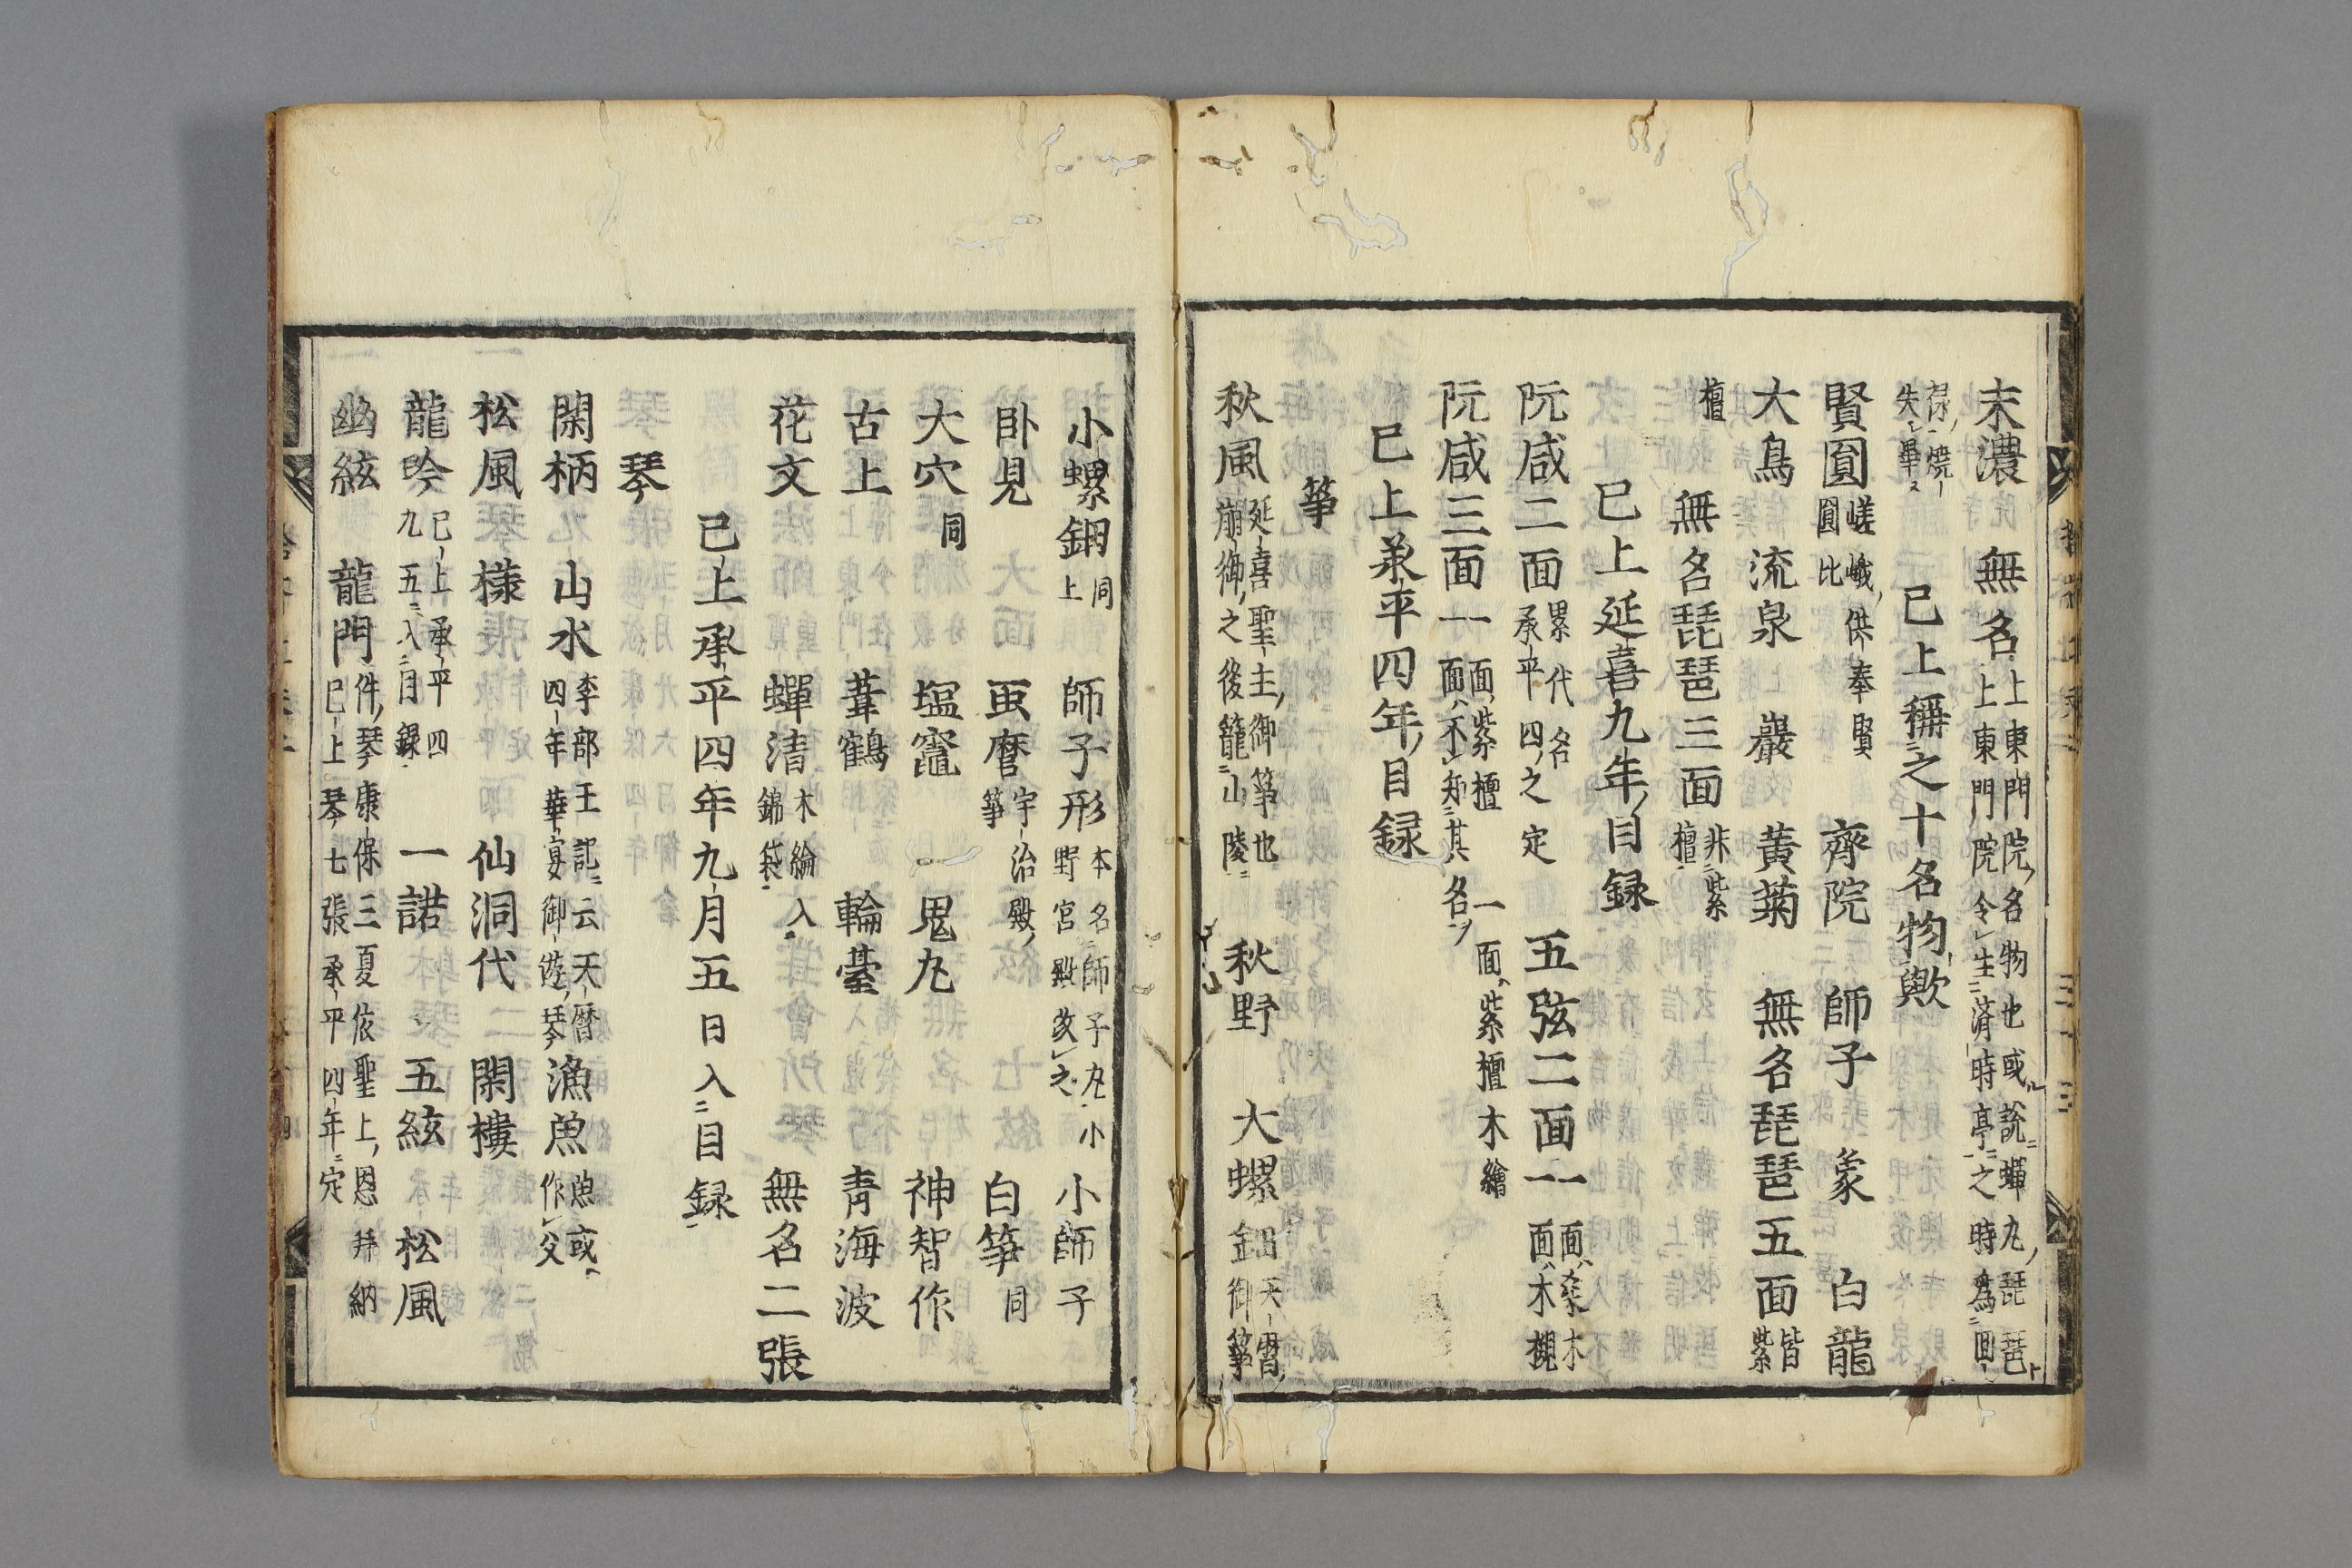 末濃 無名 上東門院名物也或説蟬丸琵琶上 上東門院令生済時亭之時為回
禄焼 失畢
已上稱之十名物歟
賢圓 嵯峨供奉賢 圓比 齊院 師子 象 白龍
大鳥 流泉 巖 黄菊 無名琵琶五面 皆 紫
檀 無名琵琶三面 非紫 檀
已上延喜九年目録
阮咸二面 累代名 承平四之定 五弦二面一 面染木 面木槻
阮咸三面一 面紫檀 一面紫檀木繪 面不知其名
已上兼平四年目録
箏
秋風 延喜聖主御箏也 崩御之後籠山陵 秋野 大螺鈿 天暦 御箏
小螺鈿 同上 師子形 本名師子丸小 野宮殿改之 小師子
卧見 䖝麿 宇治殿 箏 白箏 同
大穴 同 塩竈 鬼丸 神智作
古上 葦鶴 輪臺 青海波
花文 蟬清 木繪入 錦袋 無名二張
已上承平四年九月五日入目録
琴
閑柄 山水 李部王記云天暦 四年華宴御遊琴 漁魚 魚或 作父
松風 樣 仙洞代 閑樓
龍吟 已上承平四 九五入目録 一諾 五絃 松風
幽絃 龍門 件琴康保三夏依聖上恩拜納 已上琴七張承平四年定